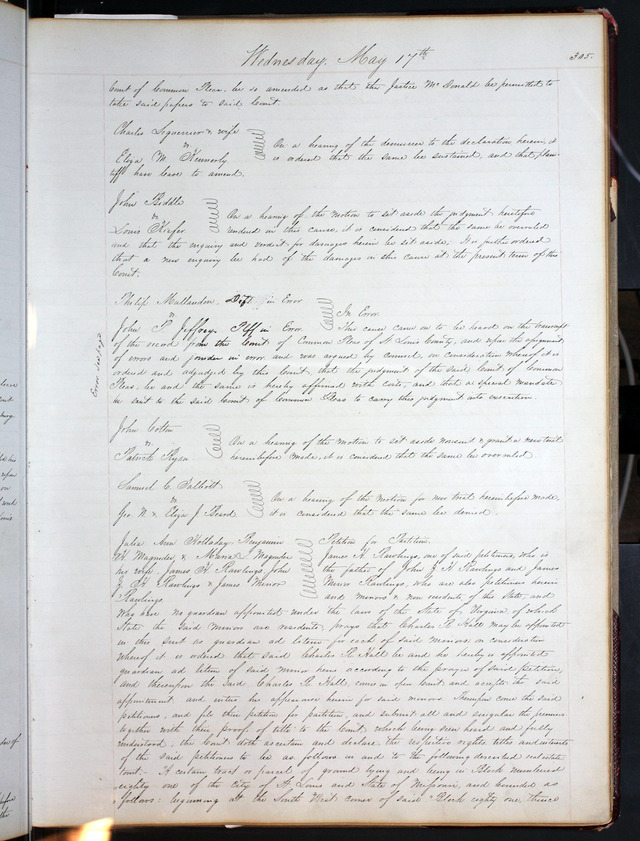 Wednesday, May 17th
305.
Court of Common Pleas, be so amended as that the Justice McDonald be permitted to
take said papers to said Court.
Charles & wife
vs
Eliza M. Kennerly
On a hearing of the demurrer to the declaration herein, it
is ordered that the same be sustained, and that plain-
tiffs have leave to amend.
John Biddle
vs
Louis Krafer
On a hearing of the motion to set aside the judgment heretofore
rendered in this cause, it is considered that the same be overruled
and that the enquiry and verdict for damages herein be set aside. It is further ordered
that a new enquiry be had of the damages in this cause at the present term of this
Court.
Philip Mallandon, Deft in Error
vs
John T. Jeffrey, Plff in Error
In Error
This cause came on to be heard on the transcript
of the record from the Court of Common Pleas of St Louis County, and upon the assignment
of errors and joinder in error and was argued by counsel, on consideration whereof it is
ordered and adjudged by this Court, that the judgment of the said Court of Common
Pleas, be and the same is hereby affirmed with costs, and that a special mandate
be sent to the said Court of Common Pleas to carry this judgment into execution.
Error
John Cotter
vs
Patrick Ryan
On a hearing of the motion to set aside nonsuit & grant a new trial
hereinbefore made, it is considered that the same be overruled
Samuel C. Talbott
vs
Geo. N. & Eliza J Beard
On a hearing of the motion for new trial hereinbefore made,
it is considered that the same be denied.
Julia Ann Holladay, Benjamin
H Magruder, & Maria Magruder
his wife, James H Rawlings, John
J. H Rawlings & James Minor
Rawlings
Petition for Partition.
James H. Rawlings, one of said petitioners, who is
the father of John J H Rawlings and James
Minor Rawlings, who are also petitioners herein
and minors & non residents of this State, and
may have no guardian appointed under the laws of the State of Virginia, of which
State the said Minors are residents, prays that Charles R. Hall may be appointed
in this Court as guardian ad litem for each of said Minors, on consideration
whereof it is ordered that said Charles R. Hall be and he hereby is appointed
guardian ad litem of said minor heirs according to the prayer of said petition,
and thereupon the said Charles R. Hall, comes in open Court and accepts the said
appointment and enters his appearance herein for said minors. Thereupon come the said
petitioners, and file their petition for partition, and submit all and singular the premises
together with their proof of title to the Court, which being seen heard and fully
understood, the Court doth ascertain and declare, the respective rights titles and interests
of the said petitioners to be as follows in and to the following described real estate
towit: A certain tract or parcel of ground lying and being in Block numbered
eighty one of the City of St. Louis and State of Missouri, and bounded as
follows: beginning at the South West corner of said Block eighty one, thence